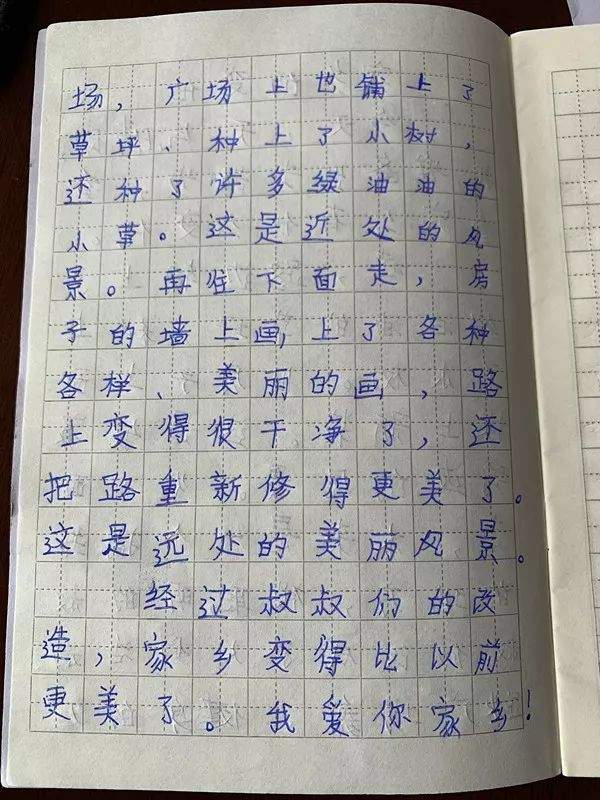 场，广场上也铺上了
草坪、种上了小树，
还种了许多绿油油的
小草。这是近处的风
景。再往下面走，房
子的墙上画上了各种
各样、美丽的画，路
上变得很干净了，还
把路重新修得更美了。
这是远处的美丽风景。
经过叔叔们的改
造，家乡变得比以前
更美了。我爱你家乡！